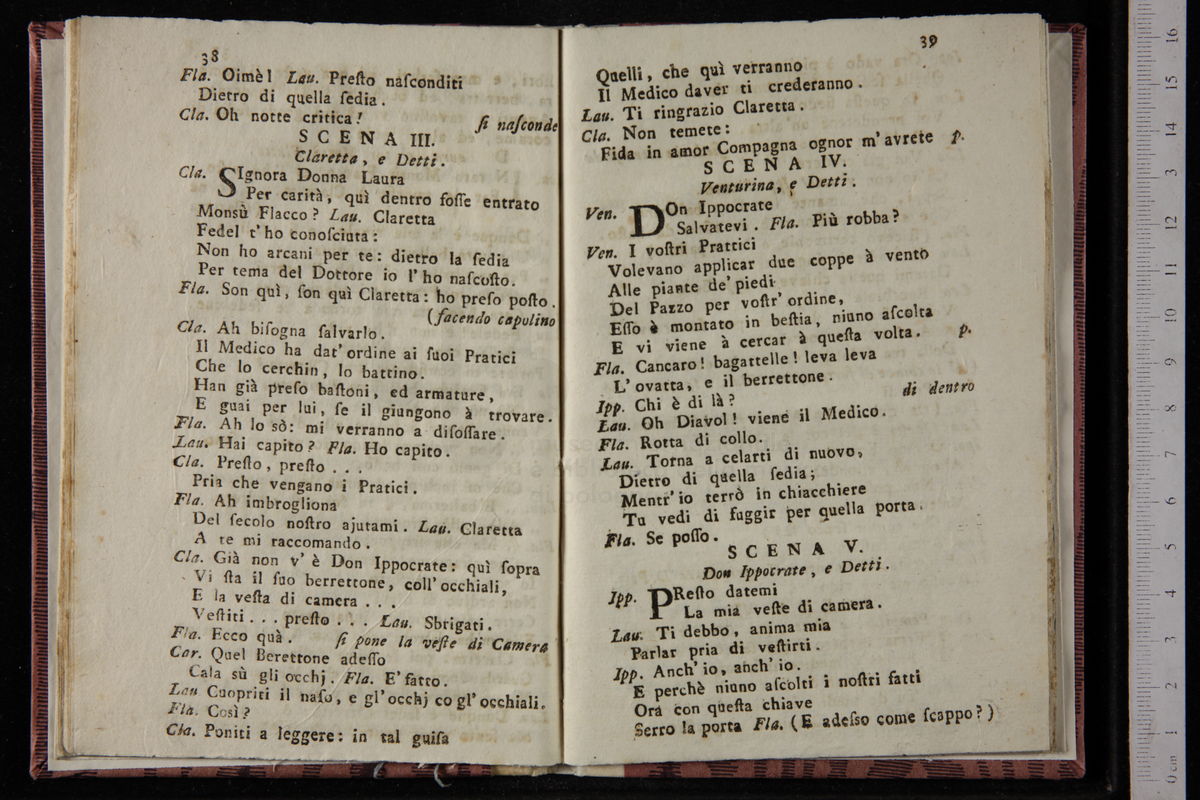 38
Fla. Oimè! Lau. Preſto naſconditi
Dietro di quella ſedia.
Cla. Oh notte critica! ſi naſconde
SCENA III.
Claretta, e Detti.
Cla. SIgnora Donna Laura
Per carità, quì dentro foſſe entrato
Monsù Flacco? Lau. Claretta
Fedel t'ho conoſciuta:
Non ho arcani per te: dietro la ſedia
Per tema del Dottore io l'ho naſcoſto.
Fla. Son quì, ſon quì Claretta: ho preſo poſto.
(facendo capolino
Cla. Ah biſogna ſalvarlo.
Il Medico ha dat' ordine ai ſuoi Pratici
Che lo cerchin, lo battino.
Han già preſo baſtoni, ed armature,
E guai per lui, ſe il giungono à trovare.
Fla. Ah lo sò: mi verranno a diſoſſare.
Lau. Hai capito? Fla. Ho capito.
Cla. Preſto, preſto ...
Pria che vengano i Pratici.
Fla. Ah imbrogliona
Del ſecolo noſtro ajutami. Lau. Claretta
A te mi raccomando.
Cla. Già non v'è Don Ippocrate: quì ſopra
Vi ſta il ſuo berrettone, coll'occhiali,
E la veſta di camera ...
Veſtiti ... preſto ... Lau. Sbrigati.
Fla. Ecco quà. ſi pone la veſte di Camera
Car. Quel Berettone adeſſo
Cala sù gli occhj. Fla. E' fatto.
Lau Cuopriti il naſo, e gl'occhj co gl'occhiali.
Fla. Così?
Cla. Poniti a leggere: in tal guiſa
39
Quelli, che quì verranno
Il Medico daver ti crederanno.
Lau. Ti ringrazio Claretta.
Cla. Non temete:
Fida in amor Compagna ognor m'avrete p.
SCENA IV.
Venturina, e Detti.
Ven. DOn Ippocrate
Salvatevi. Fla. Più robba?
Ven. I voſtri Prattici
Volevano applicar due coppe à vento
Alle piante de' piedi
Del Pazzo per voſtr' ordine,
Eſſo è montato in beſtia, niuno aſcolta
E vi viene à cercar à queſta volta. p.
Fla. Cancaro! bagattelle! leva leva
L'ovatta, e il berrettone.
Ipp. Chi è di là? di dentro
Lau. Oh Diavol! viene il Medico.
Fla. Rotta di collo.
Lau. Torna a celarti di nuovo,
Dietro di quella ſedia;
Mentr'io terrò in chiacchiere
Tu vedi di fuggir per quella porta.
Fla. Se poſſo.
SCENA V.
Don Ippocrate, e Detti.
Ipp. PReſto datemi
La mia veſte di camera.
Lau. Ti debbo, anima mia
Parlar pria di veſtirti.
Ipp. Anch'io, anch'io.
E perchè niuno aſcolti i noſtri fatti
Ora con queſta chiave
Serro la porta Fla. (E adeſso come ſcappo?)